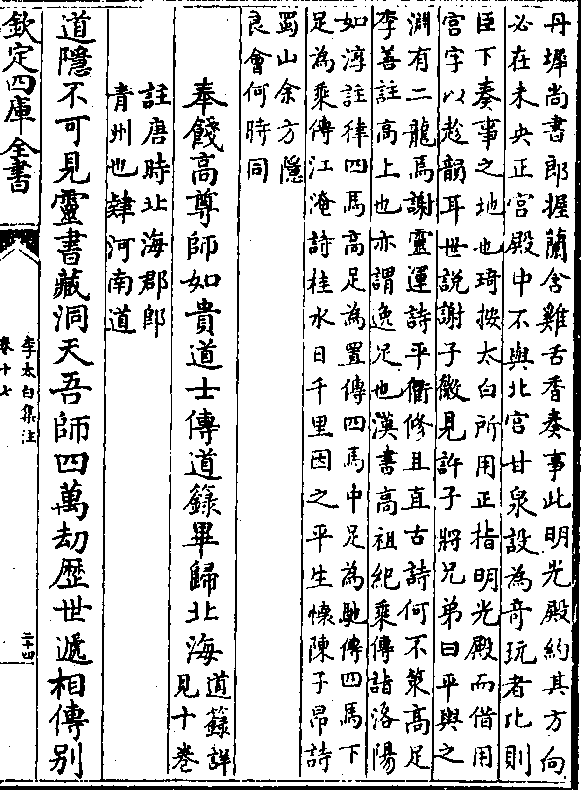 丹墀尚書郎握蘭含雞舌香奏事此明光殿約其方向
必在未央正宮殿中不與北宮甘泉設為奇玩者比則
臣下奏事之地也琦按太白所用正指明光殿而借用
宮字以趁韻耳世說謝子微見許子將兄弟曰平與之
淵有二龍焉謝靈運詩平衢修且直古詩何不策高足
李善註高上也亦謂逸足也漢書高祖紀乘傳詣洛陽
如淳註律四馬高足為置傳四馬中足為馳傳四馬下
足為乘傳江淹詩桂水日千里因之平生懷陳子昂詩
蜀山余方隱
良會何時同
奉餞高尊師如貴道士傳道籙畢歸北海
道籙詳
見十卷
註唐時北海郡即
青州也隸河南道
道隱不可見靈書藏洞天吾師四萬劫歷世遞相傳别
欽定四庫全書
李太白集注
卷十七
二十四